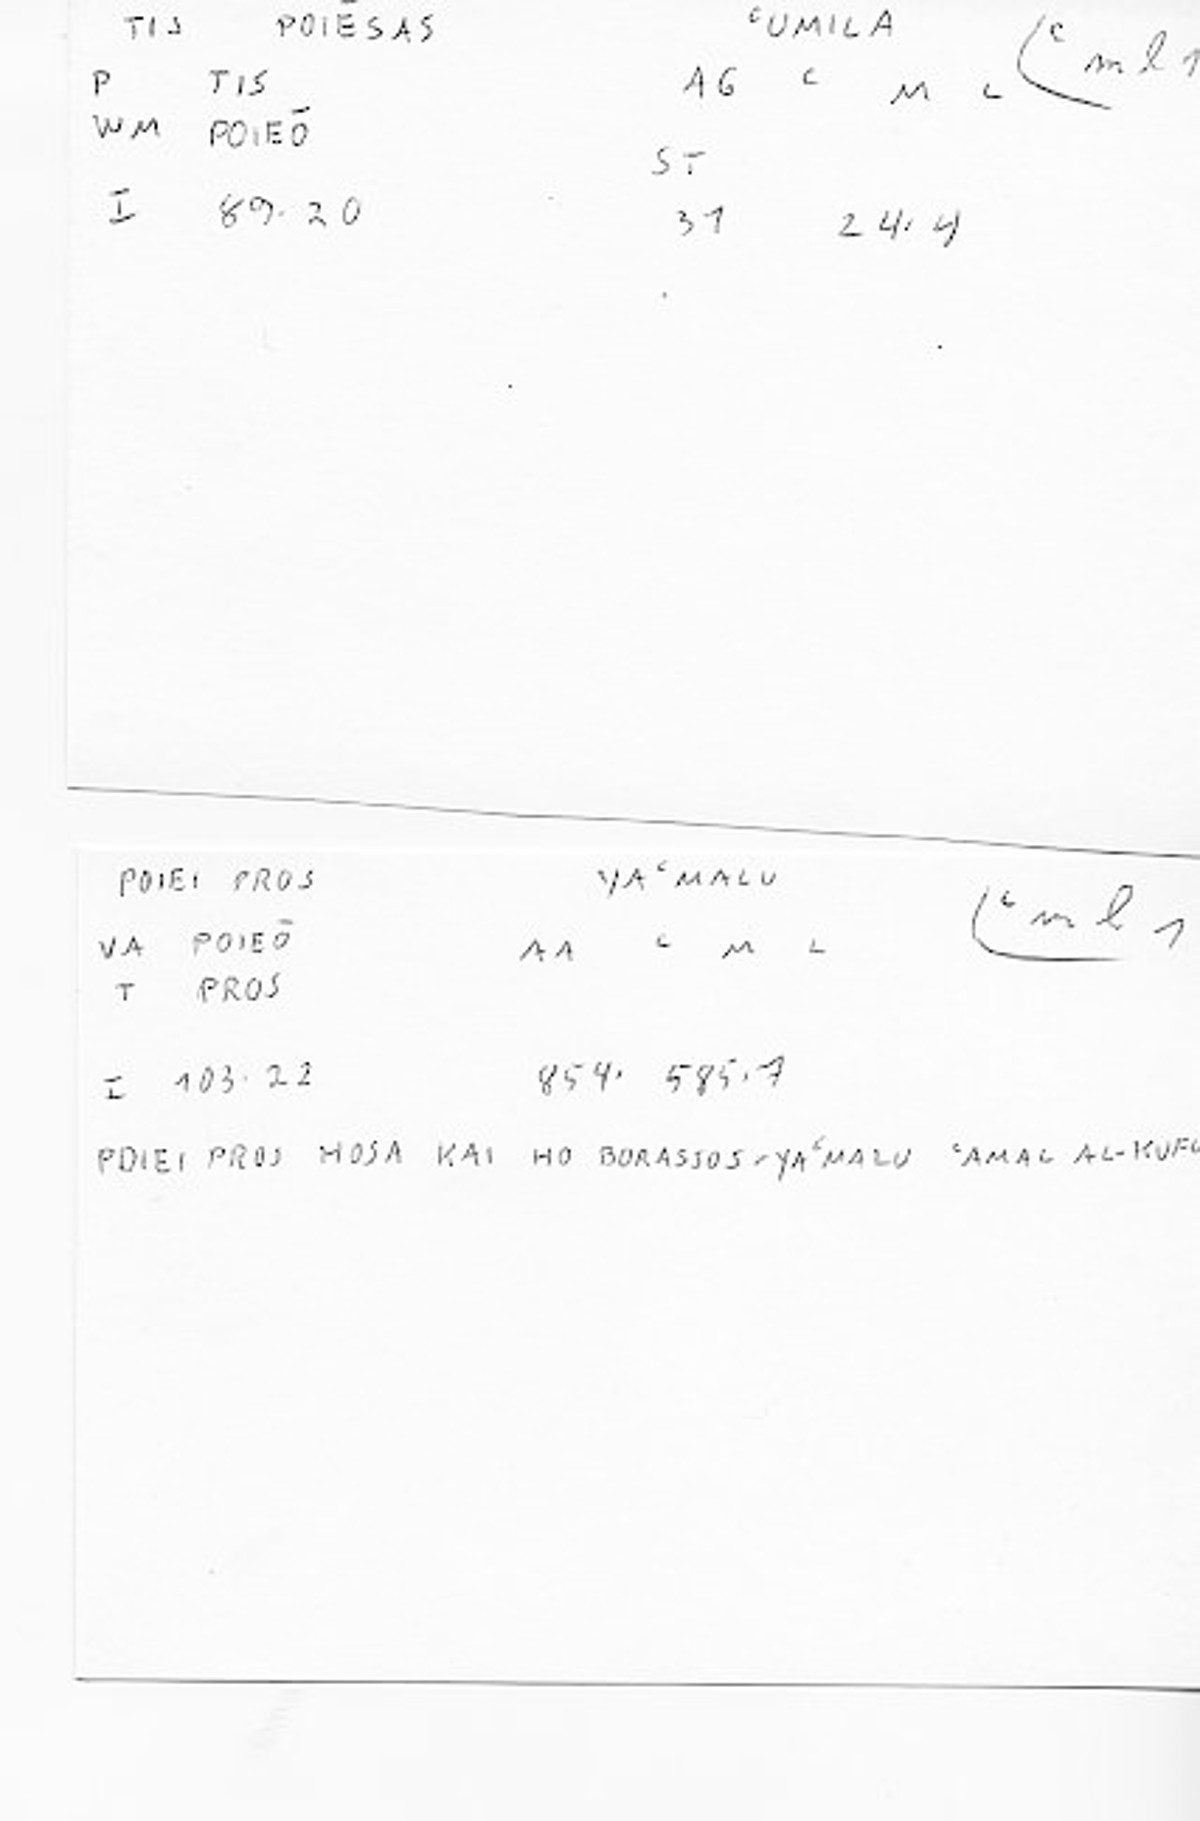 TIS POIĒSAS ʿUMILA
P TIS AG ʿ M L (ʿml 1
WM POIEŌ
ST
I 89.20 31 24.4
POIEI PROS YAʿMALU
VA POIEŌ AA ʿ M L (ʿml 1
T PROS
I 103.22 854. 585.7
POIEI PROS HOSA KAI HO BORASSOS - YAʿMALU ʿAMAL AL-KUFU